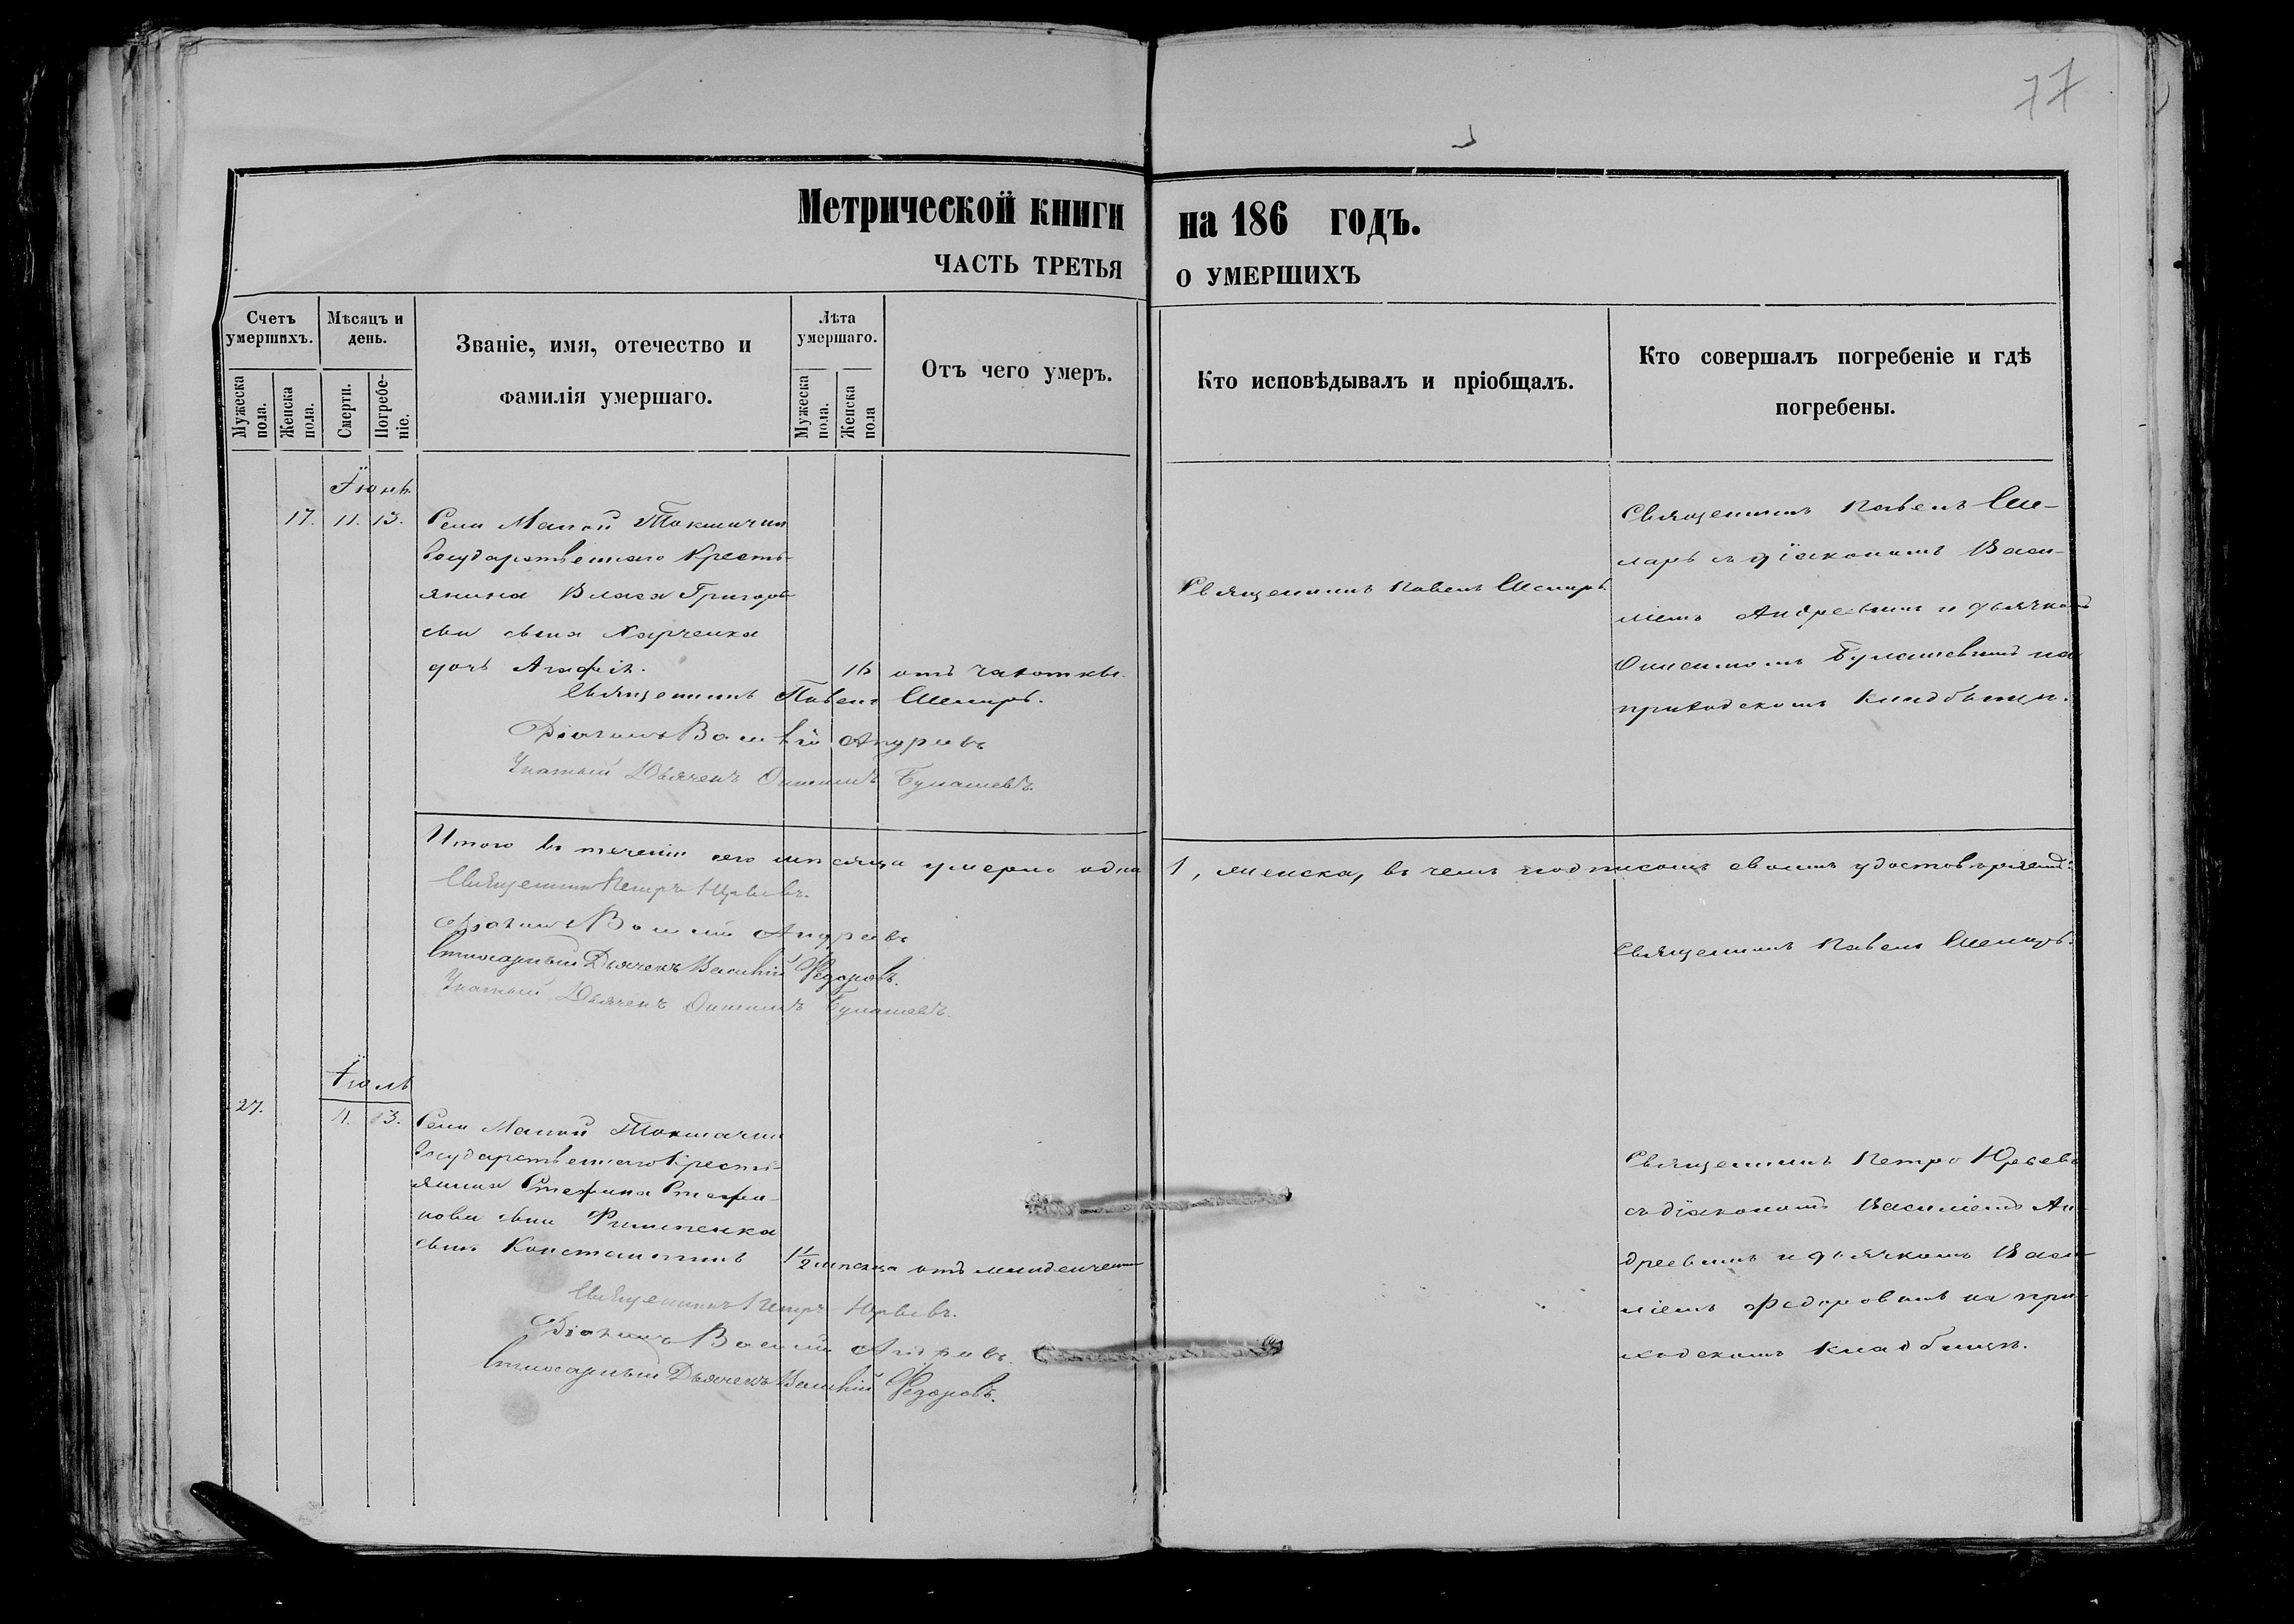 77
Метрической книги на 186 годъ.
ЧАСТЬ ТРЕТЬЯ О УМЕРШИХЪ
Счетъ умершихъ.
Мужеска пола.
Женска пола.
Мѣсяцъ и день.
Смерти.
Погребе-
ніе.
Званіе, имя, отечество и
фамилія умершаго.
Лѣта умершаго.
Мужеска пола.
Женска пола
Отъ чего умеръ.
Кто исповѣдывалъ и пріобщалъ.
Кто совершалъ погребеніе и гдѣ
погребены.
Іюнь
17. 11. 13. Села Малой Токмачки
Государственнаго Кресть-
янина Власа Григорь-
ева сына Харченка
дочь Агафія. 16 отъ чахотки.
Священникъ Павелъ
Діаконъ Василій Андреевъ
Дьячекъ
Священникъ Павелъ
Священникъ Павелъ
діакономъ Васи-
ліемъ Андреевымъ и дьячкомъ
на
приходскомъ кладбищѣ.
Итого въ теченіи сего мѣсяца умерло одна 1, женска, въ чемъ подписомъ своимъ удостовѣряемъ:
Священникъ Петръ Юрьевъ.
Діаконъ Василій Андреевъ
Дьячекъ Василій Федоровъ.
Дьячекъ
Священникъ Павелъ
Іюль
27. 11. 13. Села Малой Токмачки
Государственнаго Кресть-
янина Стефана Стефа-
нова сына Филипенка
сынъ Константинъ 1½ мѣсяца отъ младенческой
Священникъ Петръ Юрьевъ.
Діаконъ Василій Андреевъ.
Дьячекъ Василій Федоровъ.
Священникъ Петръ Юрьевъ
съ діакономъ Василіемъ Ан-
дреевымъ и дьячкомъ Васи-
ліемъ Федоровымъ на при-
ходскомъ кладбищѣ.